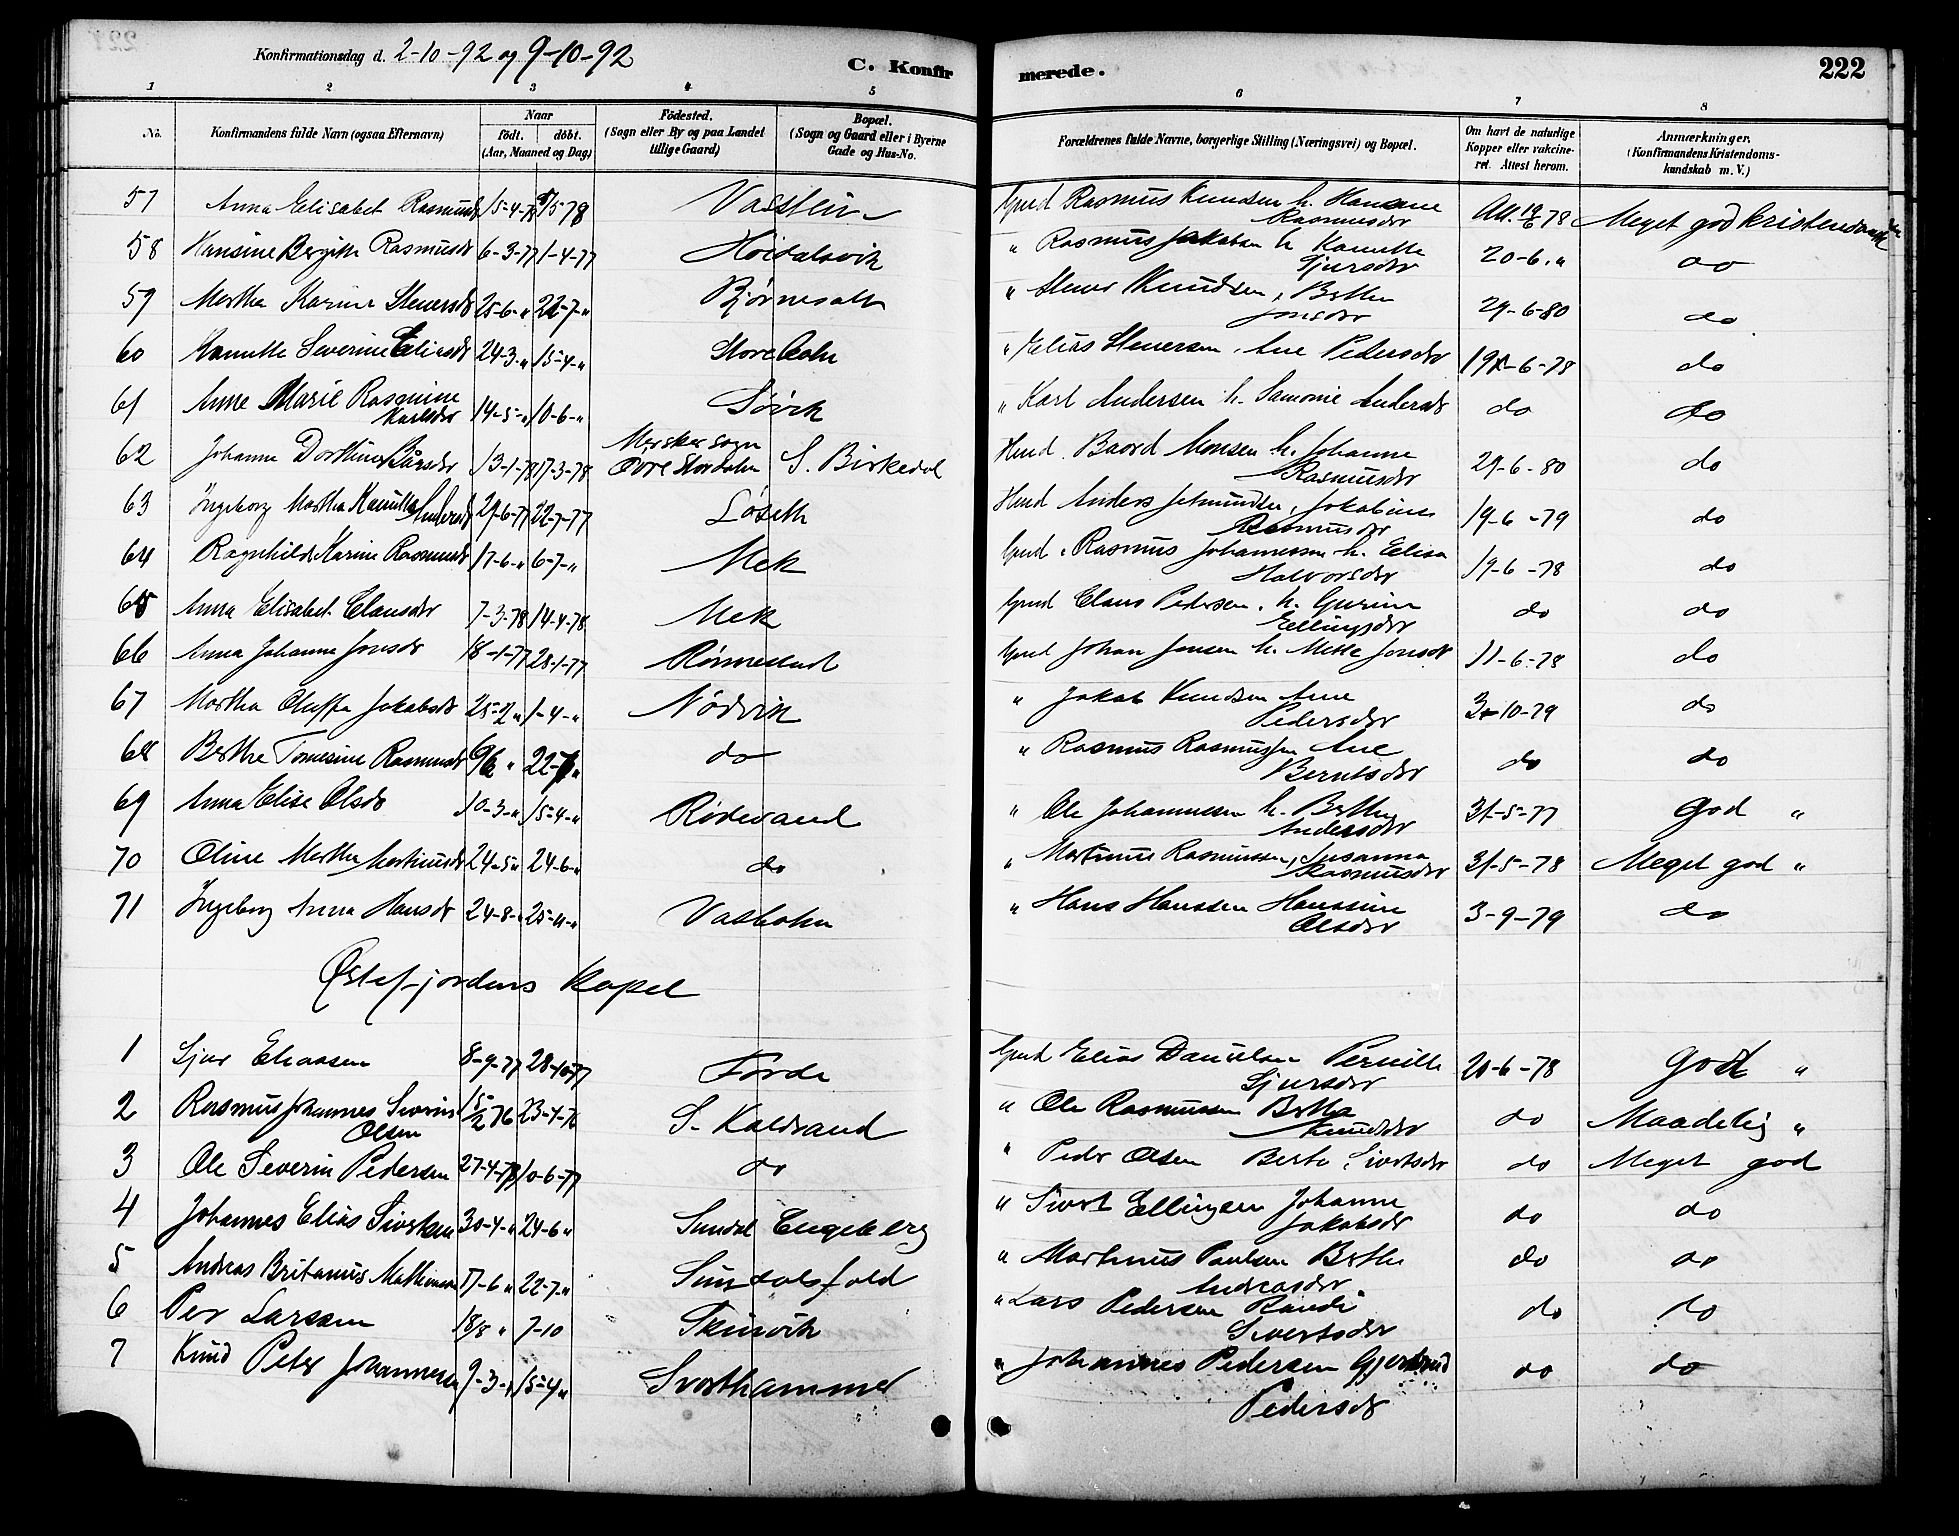 Konfirmationsdag d. 2-10-92 og 9-10-92
C. Konfirmerede.
222
1 2 3 4 5 6 7 8
No.
Konfirmandens fulde Navn (ogsaa Efternavn)
Naar
födt. döbt.
(Aar, Maaned og Dag)
Födested.
(Sogn eller By og paa Landet
tillige Gaard)
Bopæl.
(Sogn og Gaard eller i Byerne
Gade og Hus-No.
Forældrenes fulde Navne, borgerlige Stilling (Næringsvei) og Bopæl.
Om havt de naturlige
Kopper eller vakcine-
ret. Attest herom.
Anmærkninger.
(Konfirmandens Kristendoms-
kundskab m. V.)
57 Anna Elisabet Rasmusdr 15-4-78 /5-78 Gmd Rasmus Knudsen h. Hansine
Rasmusdr Att. 19/6 78 Meget god Kristendomsk
58 Hansine Bergithe Rasmusdr 6-3-77 1-4-77 Höidalsvik " Rasmus Jakobsen h Kanutte
Sjursdr 20-6 " do
59 Martha Karine Steversdr 25-6-" 22-7-" Bjørnesalt " Knudsen, Berthe
Jonsdr 29-6-80 do
60 Kanutte Severine Eliasdr 24-3-" 15-4-" Storeholm " Elias Steversen, Ane Pedersdr 19-6-78 do
61 Anne Marie Rasmine
Karlsdr 14-5-" 10-6-" Søvik " Karl Andersen h. Samonie Andersdr do do
62 Johanne Dorthine Bårsdr 13-1-78 17-3-78 sogn
Övre Stordalen S. Birkedal Hmd. Baard Monsen h. Johanne
Rasmusdr 29-6-80 do
63 Ingeborg Martha Kanutta Andersdr 29-6-77 22-7-77 Løseth Hmd Anders Jetmundsen, Jokobine
Rasmusdr 19-6-79 do
64 Ragnhild Karine Rasmusdr 17-6-" 6-7-" Mek Gmd. Rasmus Johannessen h. Elisa
Halvorsdr 19-6-78 do
65 Anna Elisabet Clausdr 7-3-78 14-4-78 Mek Gmd Claus Pedersen. h. Gurine
Ellingsdr do do
66 Anna Johanne Jonsdr 18-1-77 28-1-77 Rønnestad Gmd Johan Jonsen h. Mette Jonsdr 11-6-78 do
67 Martha Oluffa Jakobsdr 25-2-" 1-4-" Nødvik " Jakob Knudsen Ane
Pedersdr 3-10-79 do
68 Berthe Tomesine Rasmusdr 6/6 " 22-7-" do " Rasmus Rasmussen Ane
Berntsdr do do
69 Anna Elise Olsdr 10-3-" 15-4-" Rödsvand " Ole Johannesen h. Berthe
Andersdr 31-5-77 god "
70 Oline Martha Martinusdr 24-5-" 24-6-" do " Martinus Rasmussen, Susanna
Rasmusdr 31-5-78 Meget god "
71 Ingeborg Anna Hansdr 24-8-" 25-11-" Vasbotn " Hans Hanssen Hanssine
Olsdr 3-9-79 do
Østefjordens Kapel
1 Sjur Eliassen 8-9-77 28-10-77 Förde Gmd Elias Danielsen Pernille
Sjursdr 20-6-78 god "
2 Rasmus Johannes Severin
Olsen 15/2 76 23-4-76 S. Kaldvand " Ole Rasmussen Bertha
Knudsdr do Maadelig "
3 Ole Severin Pedersen 27-4-77 10-6-77 do " Peder Olsen Berte Sivertsdr do Meget god
4 Johannes Elias Sivertsen 30-4-" 24-6-" Sundal Engeberg " Sivert Ellingsen Johanne
Jakobsdr do do
5 Andreas Britanus Mathinusen 17-6 " 22-7-" Sundalsfold " Martinus Paulsen Berthe
Andreasdr do do
6 Per Larsen 18/8 " 7-10 Skinvik " Lars Pedersen Randi
Sivertsdr do do
7 Knud Peter Johannesen 9-3-" 15-4-" Svorthammer " Johannes Pedersen Gjertrud
Pedersdr do do